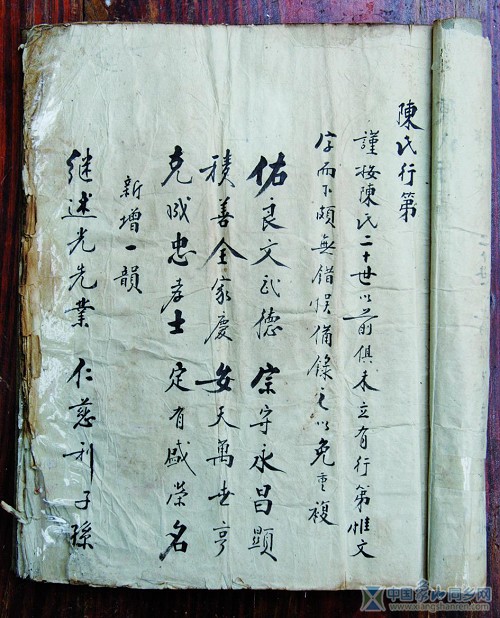 陳氏行第
謹按陳氏二十世以前俱未立有行第惟文
字而下頗無錯悮備錄之以免重複
佑良文武德 宗守永昌顯
積善全家慶 安天萬世亨
克成忠孝士 定有盛榮名
新增一韻
继述光先業 仁慈利子孫
中国象山同乡网
www.xiangshanren.com